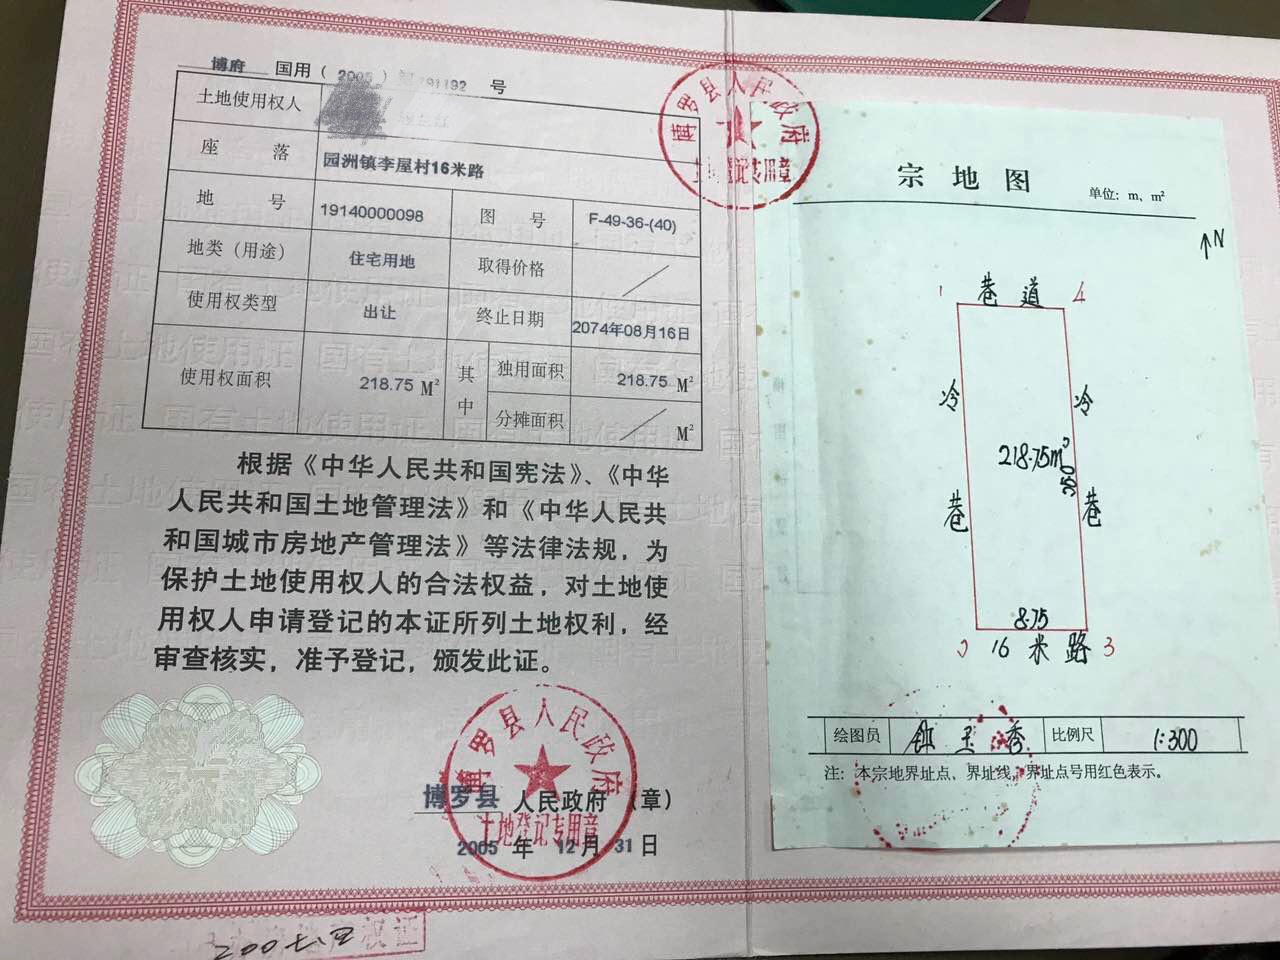 博府 国用（2005）191192 号
土地使用权人
座 落 园洲镇李屋村16米路
地 号 19140000098 图 号 F-49-36-(40)
地类（用途） 住宅用地 取得价格
使用权类型 出让 终止日期 2074年08月16日
使用权面积 218.75 M² 其中 独用面积 218.75 M²
分摊面积 M²
根据《中华人民共和国宪法》、《中华
人民共和国土地管理法》和《中华人民共
和国城市房地产管理法》等法律法规，为
保护土地使用权人的合法权益，对土地使
用权人申请登记的本证所列土地权利，经
审查核实，准予登记，颁发此证。
博罗县人民政府
土地登记专用章
博罗县 人民政府（章）
2005 年 12 月 31 日
权证
博罗县人民政府
土地登记专用章
宗地图
单位：m、m²
N
1 巷道 4
冷巷
冷巷
218.75m²
25.0
8.75
2 16米路 3
绘图员 玉秀 比例尺 1:300
注：本宗地界址点、界址线，界址点号用红色表示。